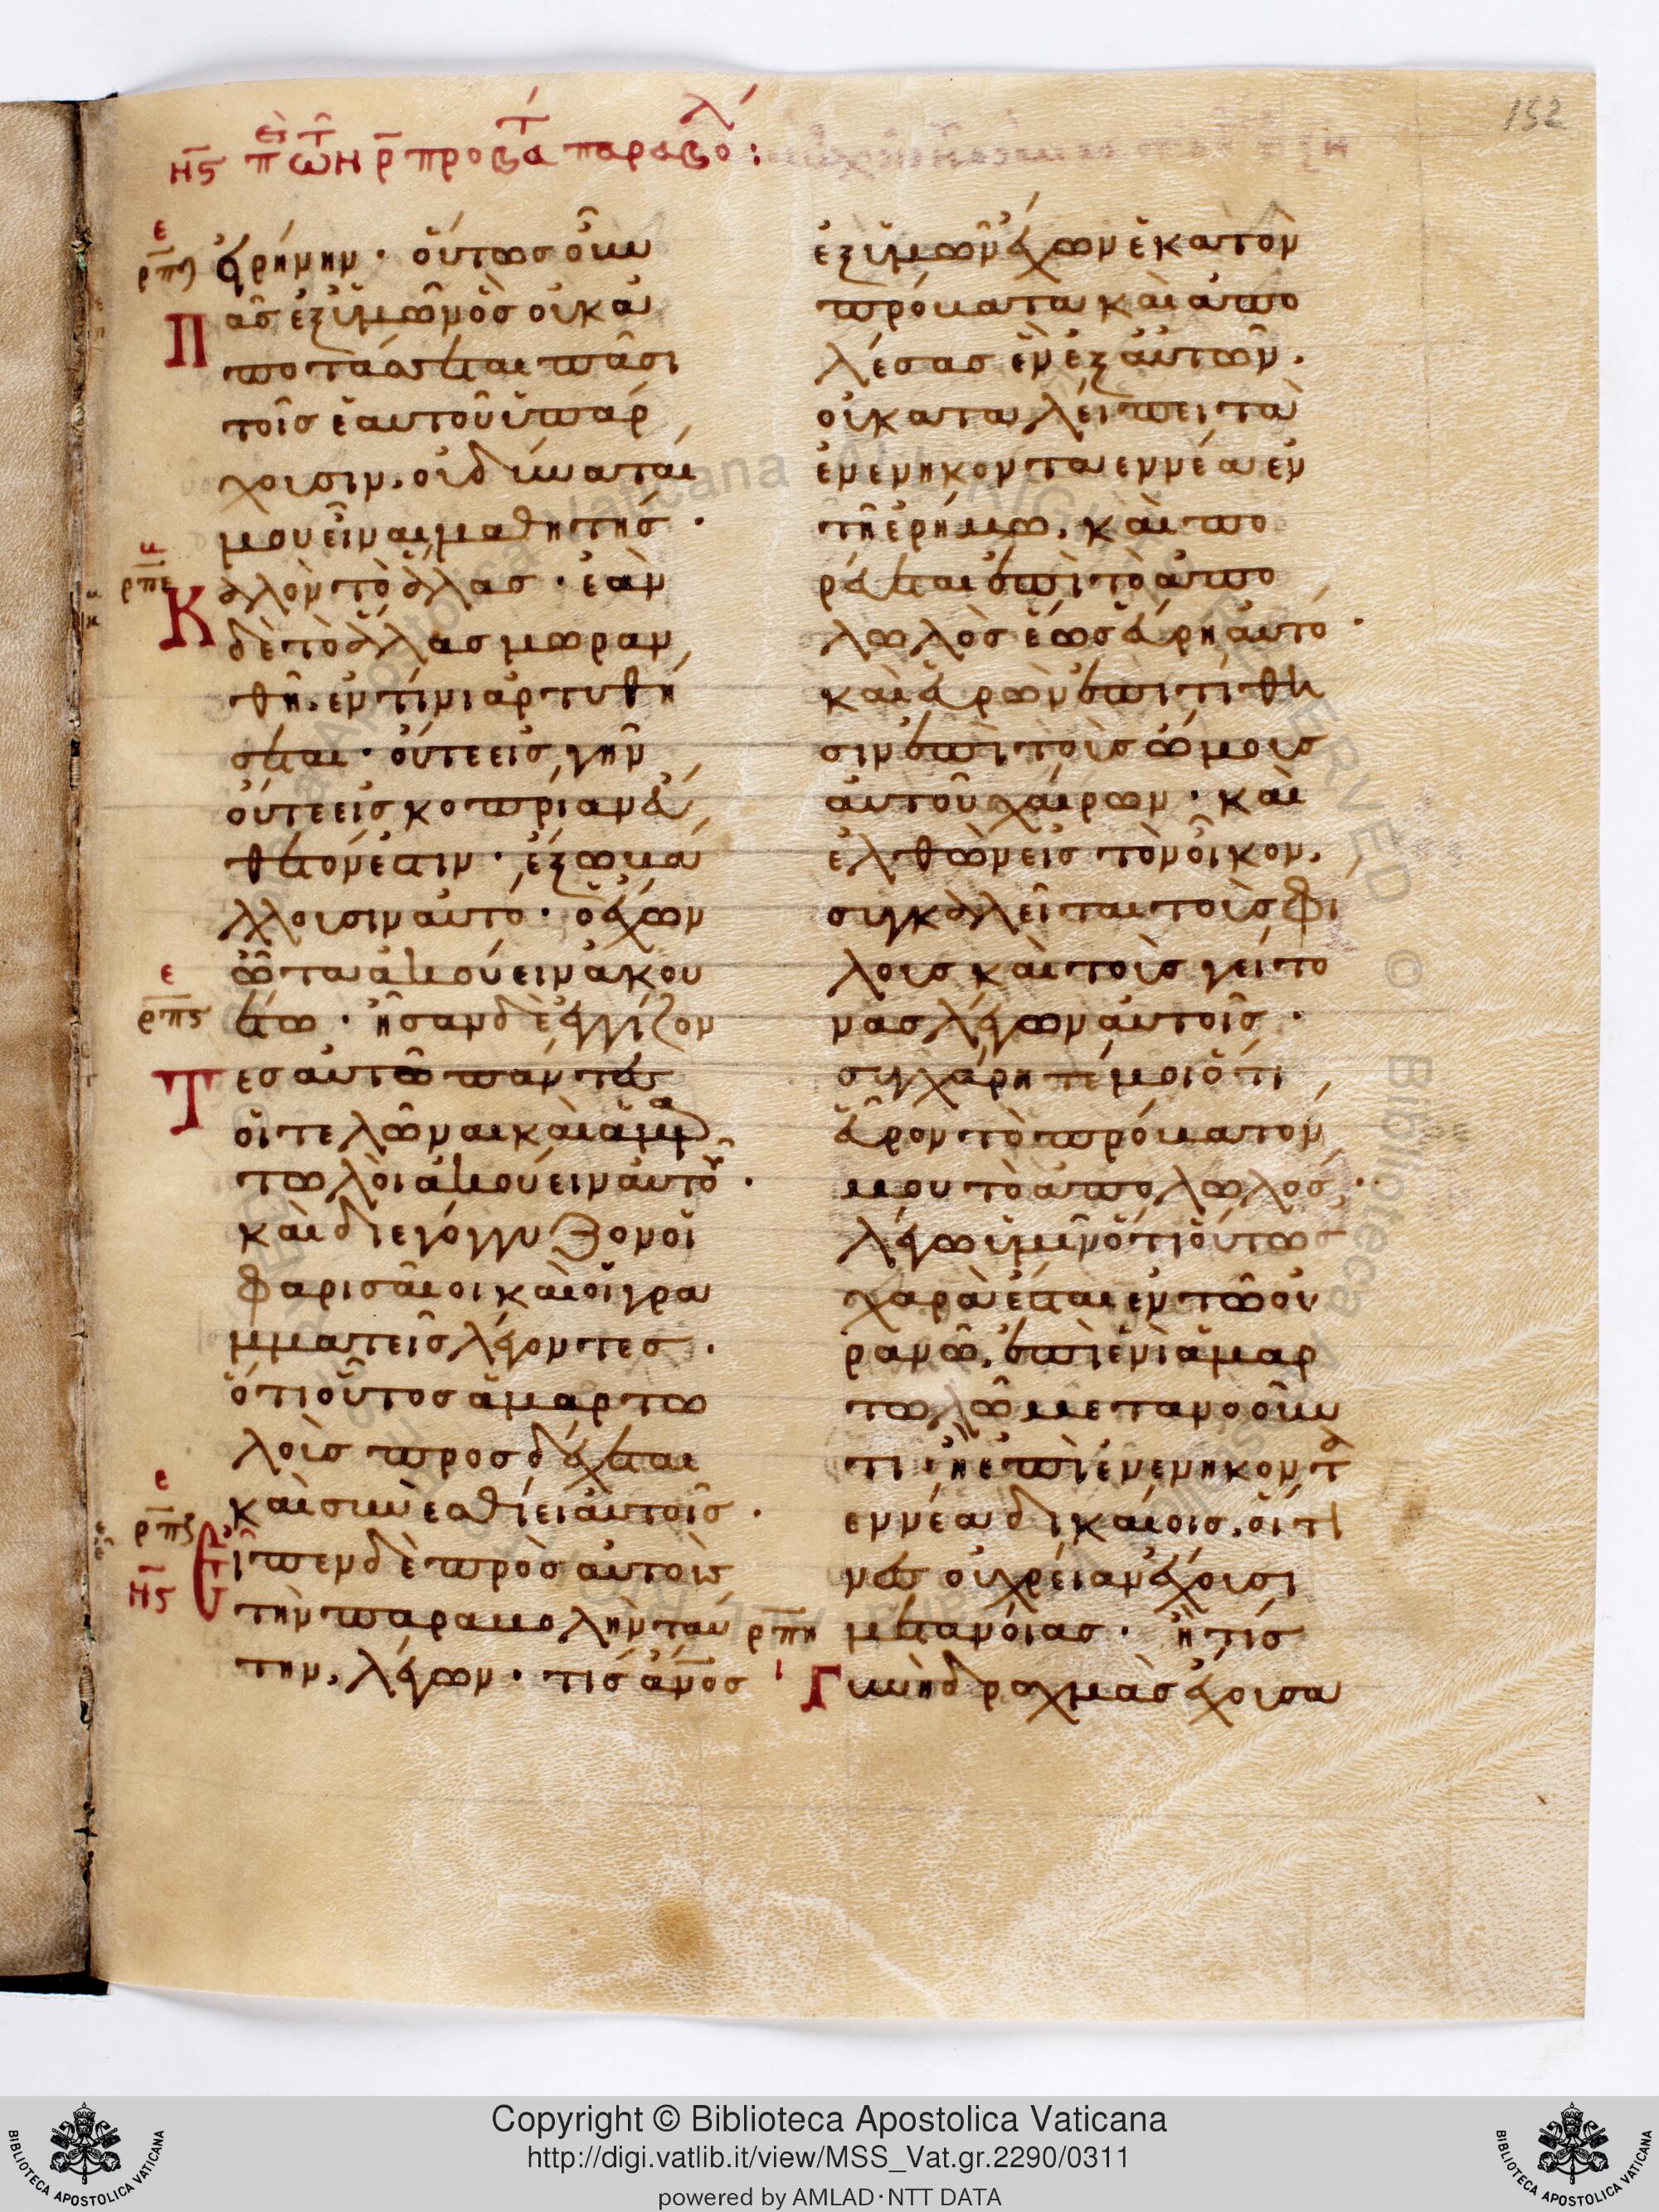 152
ν̅ϛ πὲ τῶν ρ̅ προβάτ παραβολ:
ε
ρπδ
ἐρήνην· ὅυτωσ ὀῦν
πᾶσ ἐξὑμῶν ὃσ ὀυκ ἀ
ποτάσσεται πᾶσι
τοῖσ ἑαυτοῦ ὑπάρ
χουσιν, ὀυ δύναται
μου εἶναι μαθητήσ·
ρπε
καλὸν τὸ ἅλασ· ἐὰν
δὲ τὸ ἅλασ μωραν
θῆ, ἐν τίνι ἀρτυθή
σεται· ὄυτε εἰσ γὴν
ὄυτε εἰσ κοπρίαν ἔυ
θετόν ἐστιν· ἔξω βά
λλουσιν αυτό· ὁ ἔχων
ε
ρπϛ
ὦτα ἀκούειν ἀκου
έτω· ἦσαν δὲ ἐγγίζον
τεσ αὐτῶ πάντεσ
οἱ τελῶναι καὶ ἁμαρ
τωλοὶ ἀκούειν ἀυτοῦ·
καὶ διεγόγγυζον οἱ
φαρισαῖοι καὶ οἱ γρα
μματεῖσ λέγοντεσ·
ὅτι οὗτοσ ἁμαρτω
λοὺσ προσδέχεται
καὶ συνεσθίει ἀυτοῖσ·
ε
ρπζ
ν̅ϛ
εἶπεν δὲ πρὸσ ἀυτοὺσ
τὴν παραβολὴν ταύ
την, λέγων· τίσ ἄν̅οσ
ἐξ ὑμῶν ἔχων ἑκατὸν
πρόβατα καὶ ἀπο
λέσασ ἓν ἐξ ἀυτῶν,
οὐ καταλείπει τὰ
ἐνενηκονταεννέα ἐν
τῆ ἐρήμω, καὶ πο
ρέυεται ἐπὶ τὸ ἀπο
λωλὸσ ἕωσ ἕυρη ἀυτό·
καὶ ἑυρὼν ἐπιτίθη
σιν ἐπὶ τοὺσ ὤμουσ
ἀυτοῦ χαίρων· καὶ
ἐλθὼν εἰσ τὸν οἶκον,
συγκαλεῖται τοὺσ φί
λουσ καὶ τοὺσ γείτο
νασ λέγων ἀυτοῖσ·
συγχάρητέ μοι ὅτι
ἕυρον τὸ πρόβατόν
μου τὸ ἀπολωλόσ·
λέγω ὑμῖν ὅτι ὅυτωσ
χαρὰ ἔσται ἐν τῶ ὀυ
ρανῶ, ἐπὶ ἑνὶ ἁμαρ
τωλῶ μετανοοῦν
τι· ἢ ἐπὶ ἐνενηκοντα
εννέα δικαίοισ, οἵτι
νεσ οὐ χρείαν ἔχουσι
ρπη
ι
μετανοίασ· ἢ τίσ
γυνὴ δραχμὰσ ἔχουσα
Copyright © Biblioteca Apostolica Vaticana
http://digi.vatlib.it/view/MSS_Vat.gr.2290/0311
powered by AMLAD·NTT DATA
BIBLIOTECA APOSTOLICA VATICANA
BIBLIOTECA APOSTOLICA VATICANA